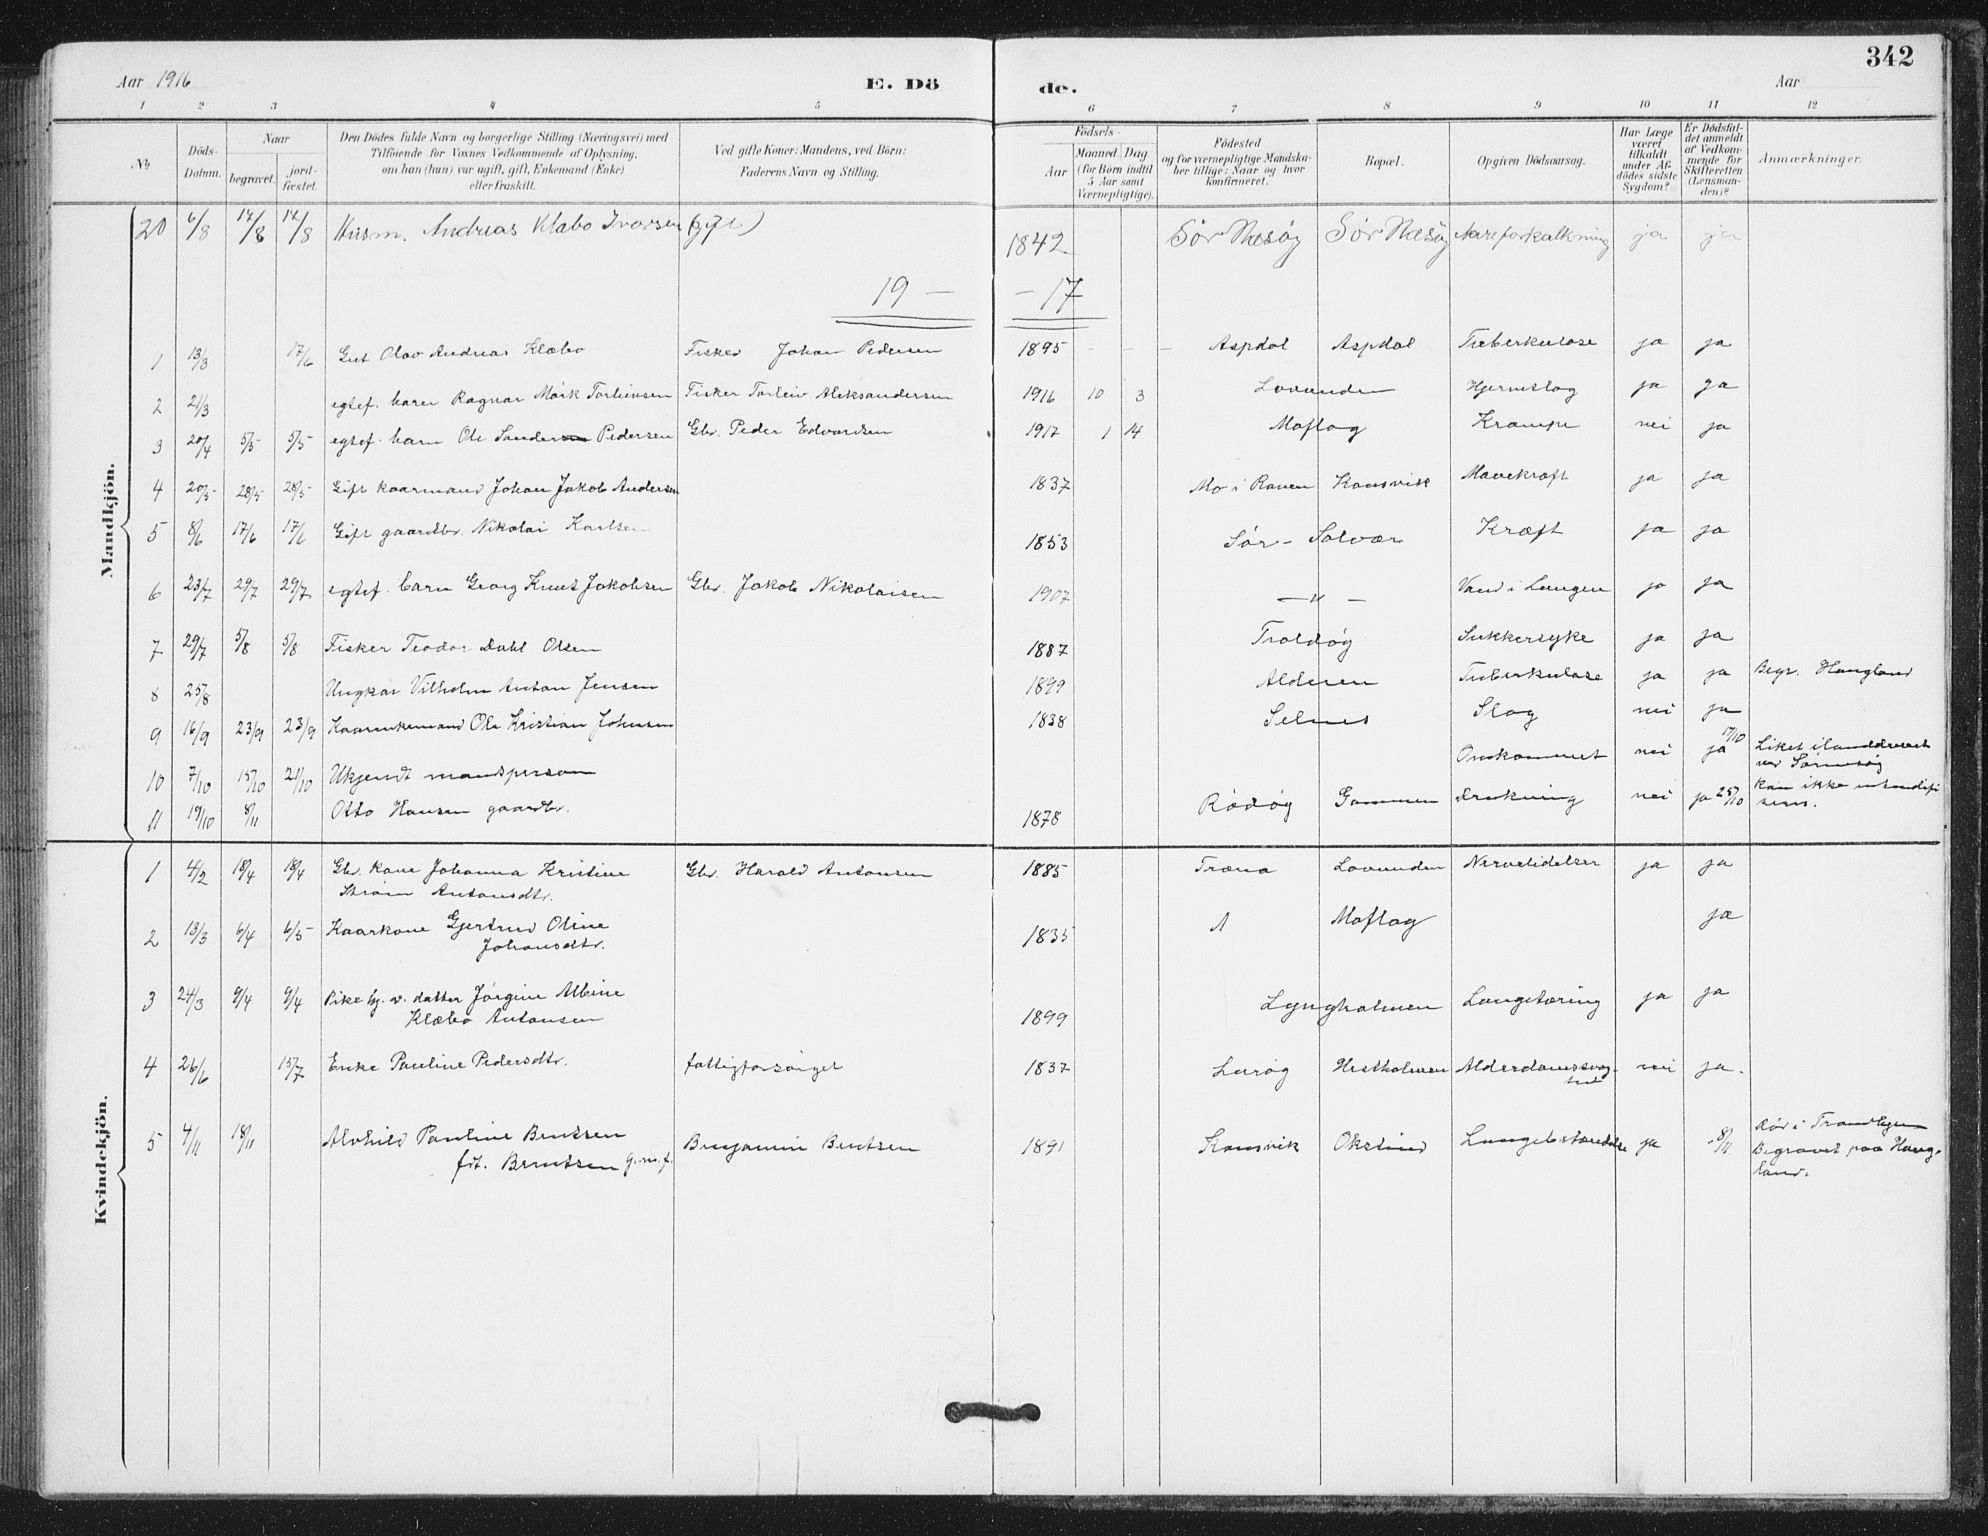 342
Aar 1916 E. Dö de. Aar
1 2 3 4 5 6 7 8 9 10 11 12
No
Döds-Datum.
Naar
begravet.
jord-fæstet.
Den Dödes fulde Navn og borgerlige Stilling (Næringsvei) med
Tilföiende for Voxnes Vedkommende af Oplysning,
om han (hun) var ugift, gift, Enkemand (Enke)
eller fraskilt.
Ved gifte Koner: Mandens, ved Börn:
Faderens Navn og Stilling.
Födsels-
Aar
Maaned
Dag
(for Börn indtil
5 Aar samt
Værnepligtige).
Födested
og for værnepligtige Mandska-
ber tillige: Naar og hvor
konfirmeret.
Bopæl.
Opgiven Dödsaarsag.
Har Læge
været
tilkaldt
under Af-
dödes sidste
Sygdom?
Er Dödsfal-
det anmeldt
af Vedkom-
mende for
Skifteretten
(Lensman-
den)?
Anmærkninger.
Mandkjön.
20 6/8 12/8 12/8 Husm. Andreas Klabo Ivarsen (gift) 1842 Sör Næsöy Sör Næsöy Aareforkalkning ja ja
19 — — 17
1 13/3 17/6 Gut Olav Andreas Klæbo Fisker Johan Pedersen 1895 - - - Aspdal Aspdal Tuberkulose ja ja
2 21/3 egtef. barn Ragnar Mörk Torleivsen Fisker Torleiv Aleksandersen 1916 10 3 Lovunden Hjerneslag ja ja
3 20/4 5/5 5/5 egtef. barn Ole Sander Pedersen Gbr. Peder Edvardsen 1917 1 14 Moflag Krampe nei ja
4 20/5 28/5 28/5 Gift kaarmand Johan Jakob Andersen 1837 Mo i Ranen Konsvik Mavekræft ja ja
5 8/6 17/6 17/6 Gift gaardbr. Nikolai Karlsen 1853 Sör-Solvær Kræft ja ja
6 23/7 29/7 29/7 egtef. barn Georg Knut Jakobsen Gbr. Jakob Nikolaisen 1907 —„— Vand i Lungen ja ja
7 29/7 5/8 5/8 Fisker Teodor Dahl Olsen 1887 Troldög Sukkersyke ja ja
8 25/8 Ungkar Vilhelm Anton Jensen 1899 Alderen Tuberkulose ja ja Begr. Haugland
9 16/9 23/9 23/9 Kaarenkemand Ole Kristian Johnsen 1838 Selnes Slag nei ja
10 7/10 15/10 21/10 Ukjendt mandsperson Omkommet nei ja 17/10 Liket ilanddrevet
ved Sörnesöy
kan ikke
11 19/10 8/11 Otto Hansen gaardbr. 1878 Rödög Gammen Drukning nei ja 25/10
Kvindekjön.
1 4/2 18/4 18/4 Gbr. kone Johanna Kristine Gbr. Harald Antonsen 1885 Træna Lovunden Nervelidelser ja ja
Ström Antonsdtr.
2 13/3 6/4 6/5 Kaarkone Gjertrud Oline 1835 Moflag ja
Johansdtr.
3 24/3 9/4 9/4 Pike hj. v. datter Jörgine Albine 1899 Lyngholmen Lungetæring ja ja
Klæbo Antonsen
4 26/6 15/7 Enke Pauline Pedersdtr. fattigforsörget 1837 Luröy Hestholmen Alderdomssvag- nei ja.
het
5 4/11 18/11 Alvhild Pauline Bentsen Benjamin Bentsen 1891 Konsvik Okstind ja 8/11 Död i
föt. Berntsen g.m.f. Begravet paa Haug-
land.